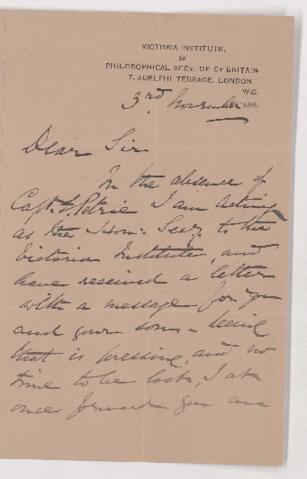 VICTORIA INSTITUTE,
OR
PHILOSOPHICAL SOCY. OF GT BRITAIN
7, ADELPHI TERRACE, LONDON
W.C.
3rd November 188
Dear Sir
In the absence of
Capt. F. Petrie I am acting
as the Hon: Secy. to the
Victoria Institute, and
have received a letter
with a message for you
and your son -
that is pressing, and no
time to be lost, I at
once forward you